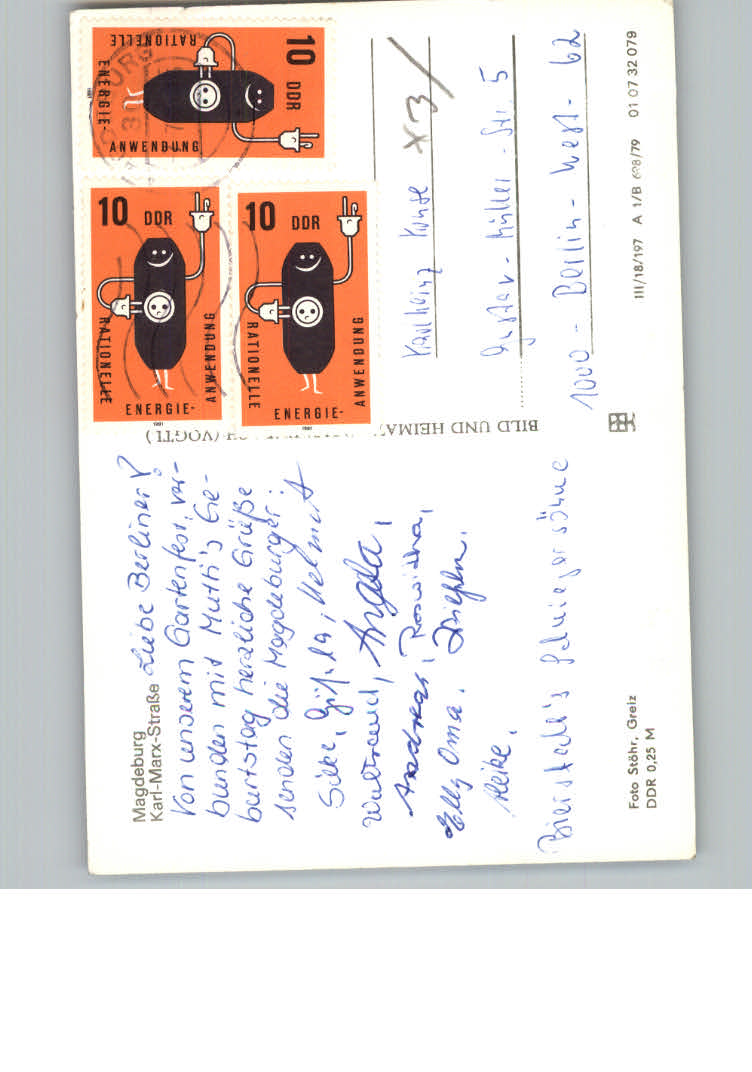 Magdeburg
Karl-Marx-Straße
Liebe Berliner!
Von unserem Gartenfest, ver-
bunden mit Mutti's Ge-
burtstag herzliche Grüße
senden die Magdeburger:
Silke, Gisela, Helmut
Waltraud, Angela,
Andreas, Roswitha,
Elly Oma.
Heike.
Bierstall's Schwiegersöhne
Foto Stöhr, Greiz
DDR 0,25 M
BILD UND HEIMAT (VOGTL)
10 DDR
RATIONELLE
ENERGIE-
ANWENDUNG
1981
10 DDR
RATIONELLE
ENERGIE-
ANWENDUNG
1981
10 DDR
RATIONELLE
ENERGIE-
ANWENDUNG
1981
x3/
Karlheinz Kunse
Gustav-Müller-Str. 5
1000 - Berlin-West-62
III/18/197 A 1/B 698/79 01 07 32 079